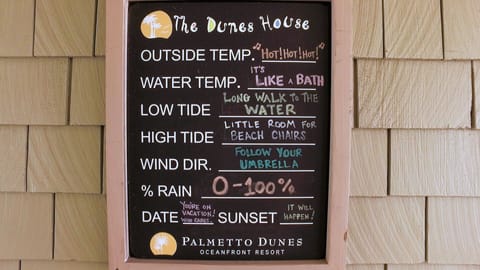 The Dunes House
OUTSIDE TEMP. HOT! HOT! HOT!
WATER TEMP. IT'S LIKE A BATH
LOW TIDE LONG WALK TO THE WATER
HIGH TIDE LITTLE ROOM FOR BEACH CHAIRS
WIND DIR. FOLLOW YOUR UMBRELLA
% RAIN 0-100%
DATE YOU'RE ON VACATION! WHO CARES SUNSET IT WILL HAPPEN!
PALMETTO DUNES
OCEANFRONT RESORT